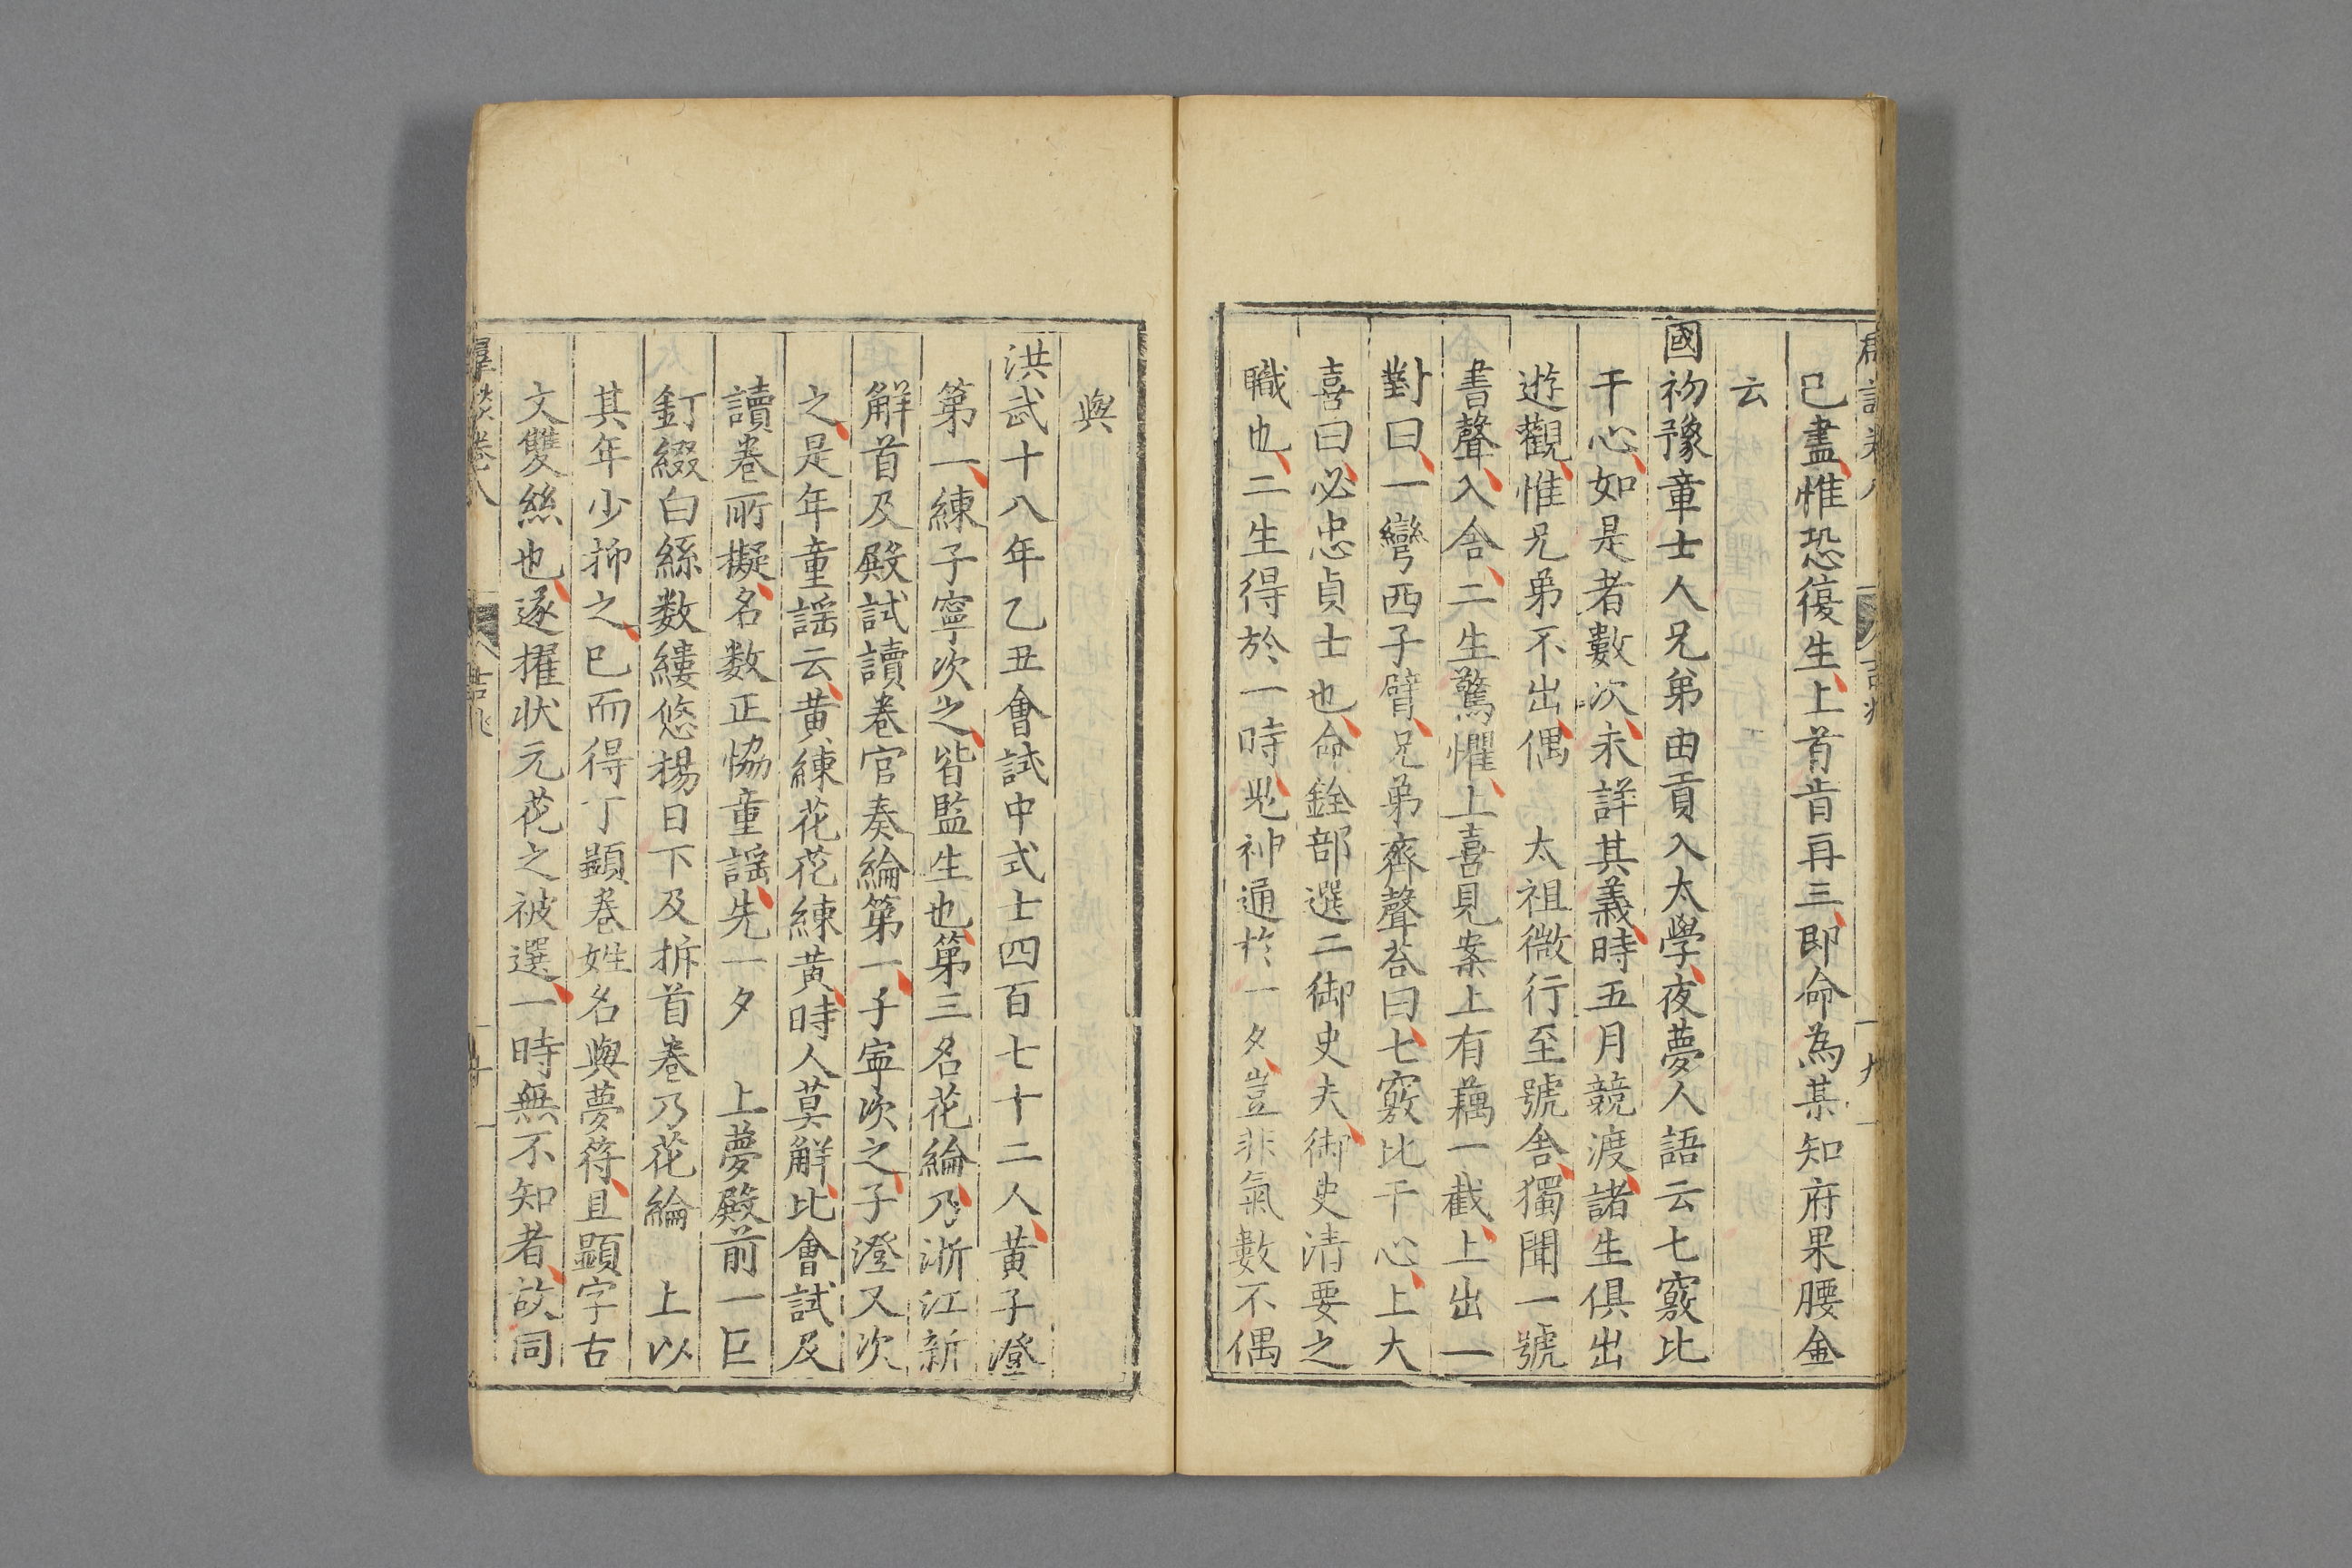 已盡惟恐復生上首肯再三即命為某知府果腰金
云
國初豫章士人兄弟由貢入太學夜夢人語云七竅比
干心如是者數次未詳其義時五月競渡諸生俱出
遊觀惟兄弟不出偶 太祖微行至號舍獨聞一號
書聲入舍二生驚懼上喜見案上有藕一截上出一
對曰一彎西子臂兄弟齊聲荅曰七竅比干心上大
喜曰必忠貞士也命銓部選二御史夫御史清要之
職也二生得於一時鬼神通於一夕豈非氣數不偶
與
洪武十八年乙丑會試中式士四百七十二人黃子澄
第一練子寧次之皆監生也第三名花綸乃浙江新
解首及殿試讀卷官奏綸第一子寧次之子澄又次
之是年童謡云黃練花花練黃時人莫解比會試及
讀卷所擬名数正恊童謡先一夕 上夢殿前一巨
釘綴白絲数縷悠揚日下及拆首卷乃花綸 上以
其年少抑之已而得丁顯卷姓名與夢符且顯字古
文雙絲也遂擢状元花之被選一時無不知者故同
羣談卷八